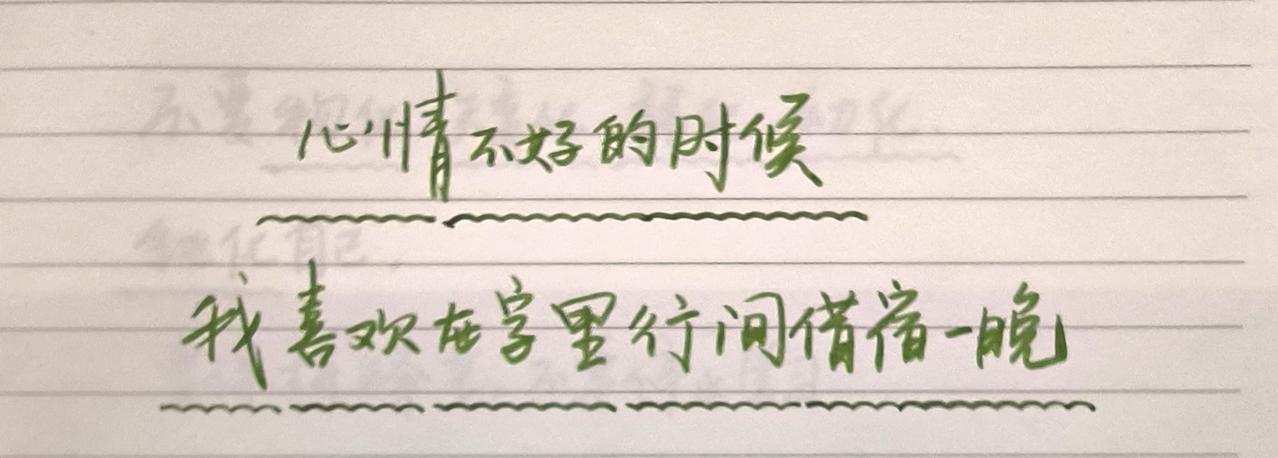 心情不好的时候
我喜欢在字里行间借宿一晚